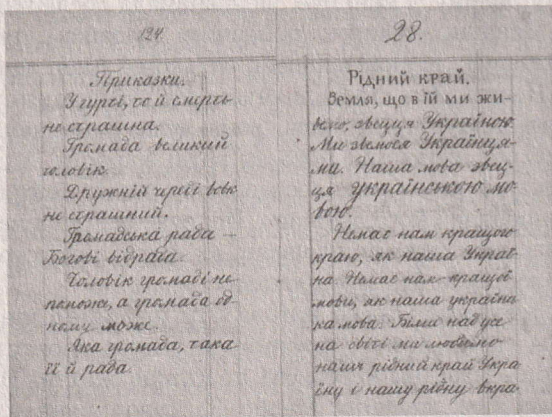 124.
Приказки.
У гурті, то й смерть
не страшна.
Громада великий
чоловік.
Дружній череді вовк
не страшний.
Громадська рада –
Богові відрада.
Чоловік громаді не
поможе, а громада од-
ному може.
Яка громада, така
її й рада.
28.
Рідний край.
Земля, що в їй ми жи-
вемо, звецця Україною.
Ми звемося Українця-
ми. Наша мова звец-
ця українською мо-
вою.
Немає нам кращого
краю, як наша Украї-
на. Немає нам кращої
мови, як наша україн
ка мова. Більш над усе
на світі ми любимо
наш рідний край Укра
їну і нашу рідну вкра